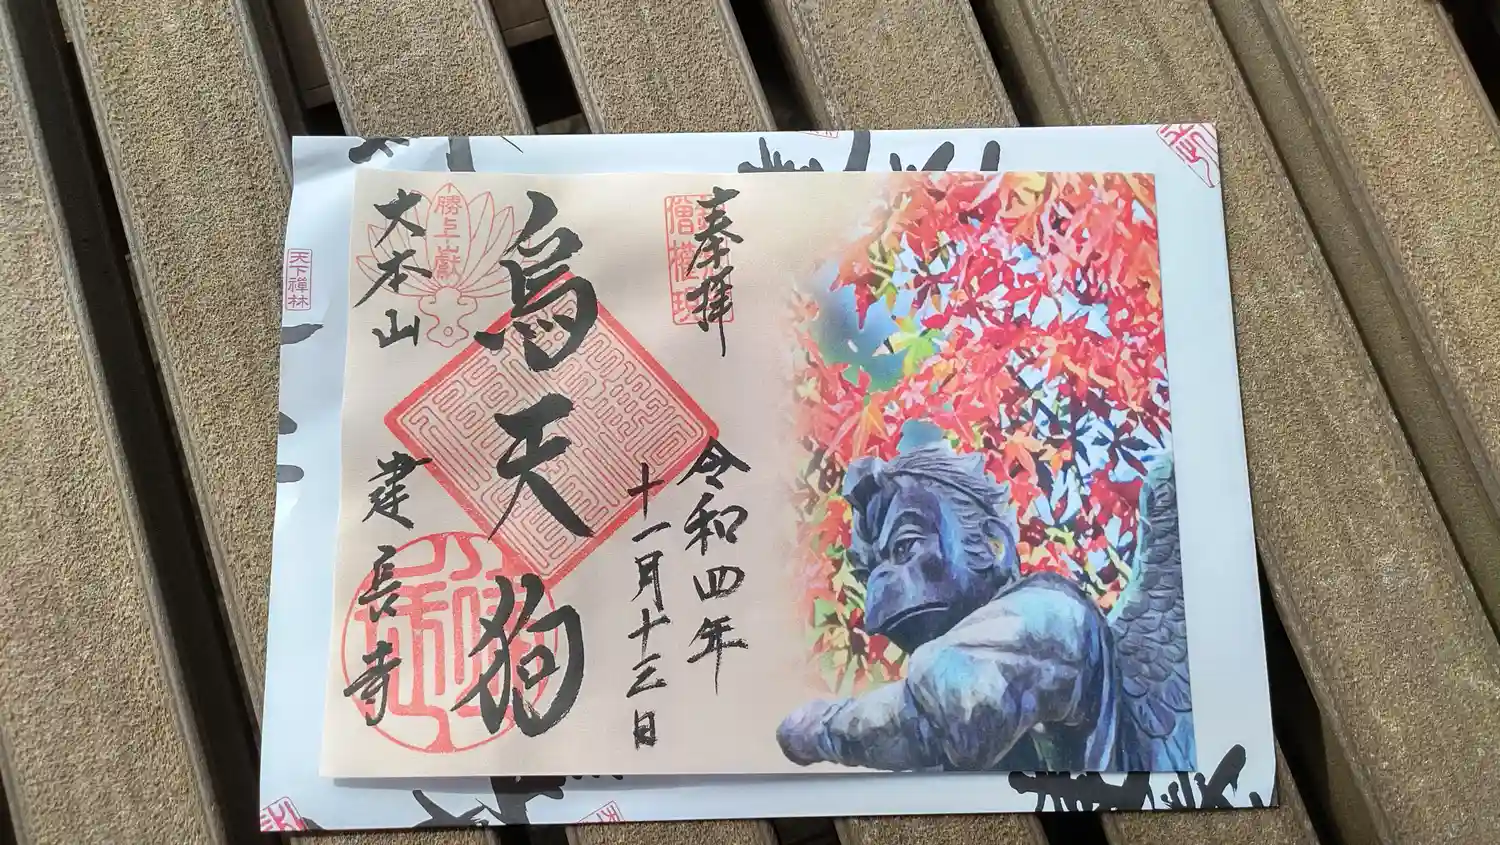 奉拝
令和四年
十一月十三日
烏天狗
勝上嶽
大本山
建長寺
天下禅林